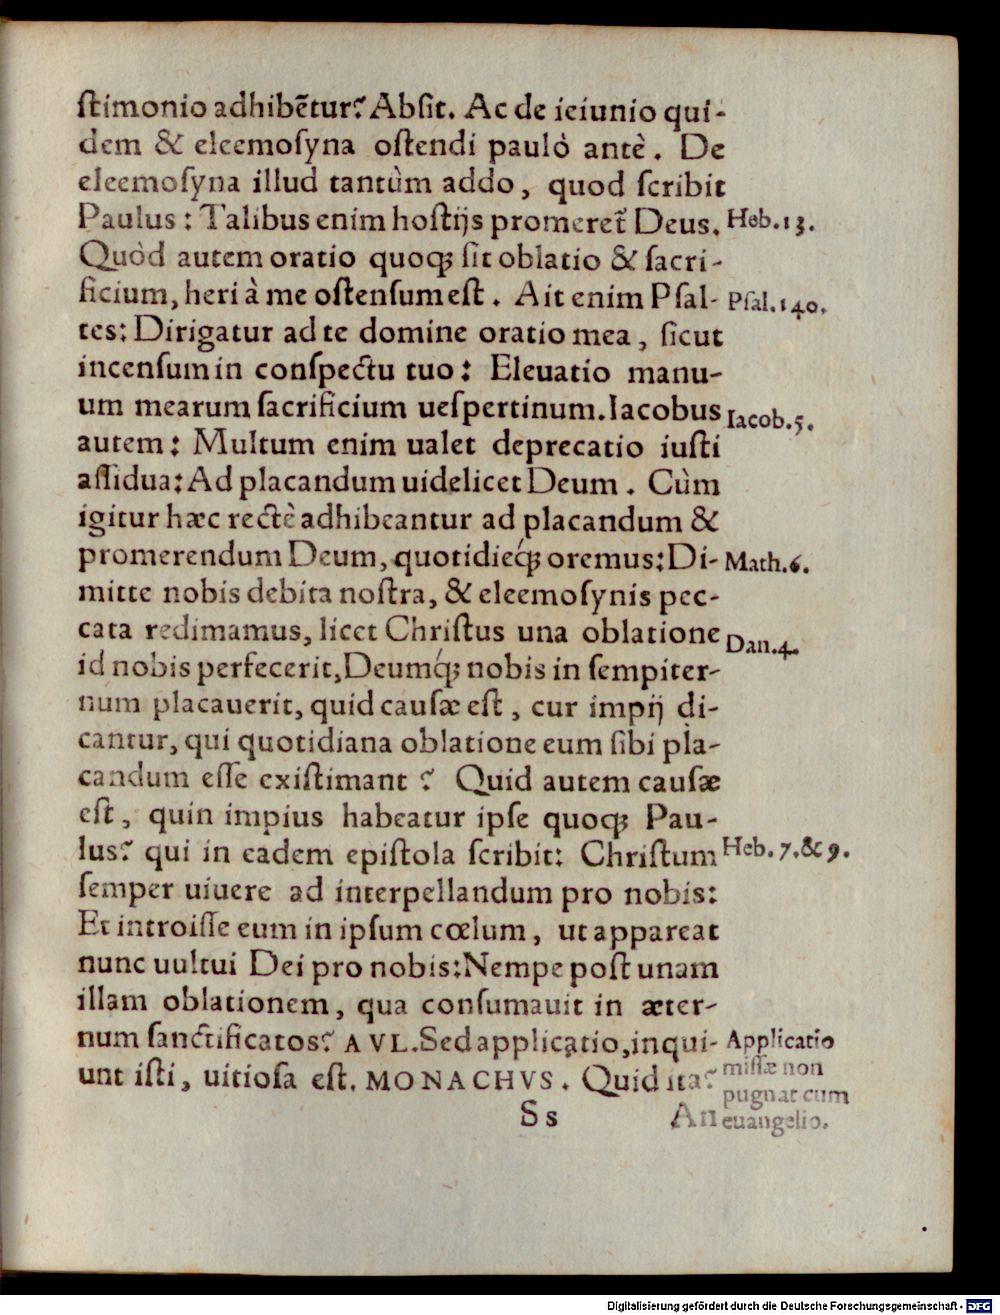 ſtimonio adhibẽtur? Abſit. Ac de ieiunio qui-
dem & eleemoſyna oſtendi paulò antè. De
eleemoſyna illud tantùm addo, quod ſcribit
Paulus: Talibus enim hoſtijs promeret̃ Deus. Heb.13.
Quòd autem oratio quoqꝫ ſit oblatio & ſacri-
ficium, heri à me oſtenſum eſt. Ait enim Pſal- Pſal.140.
tes: Dirigatur ad te domine oratio mea, ſicut
incenſum in conſpectu tuo: Eleuatio manu-
um mearum ſacrificium ueſpertinum. Iacobus Iacob.5.
autem: Multum enim ualet deprecatio iuſti
aſſidua: Ad placandum uidelicet Deum. Cùm
igitur hæc rectè adhibeantur ad placandum &
promerendum Deum, quotidieq́ꝫ oremus: Di- Math.6.
mitte nobis debita noſtra, & eleemoſynis pec-
cata redimamus, licet Chriſtus una oblatione Dan.4.
id nobis perfecerit, Deumq́ꝫ nobis in ſempiter-
num placauerit, quid cauſæ eſt, cur impij di-
cantur, qui quotidiana oblatione eum ſibi pla-
candum eſſe exiſtimant? Quid autem cauſæ
eſt, quin impius habeatur ipſe quoqꝫ Pau-
lus? qui in eadem epiſtola ſcribit: Chriſtum Heb. 7.& 9.
ſemper uiuere ad interpellandum pro nobis:
Et introiſſe eum in ipſum cœlum, ut appareat
nunc uultui Dei pro nobis: Nempe poſt unam
illam oblationem, qua conſumauit in æter-
num ſanctificatos? AVL. Sed applicatio, inqui- Applicatio
unt iſti, uitioſa eſt. MONACHVS. Quid ita? miſſæ non
pugnat cum
Ss An euangelio.
Digitalisierung gefördert durch die Deutsche Forschungsgemeinschaft - DFG